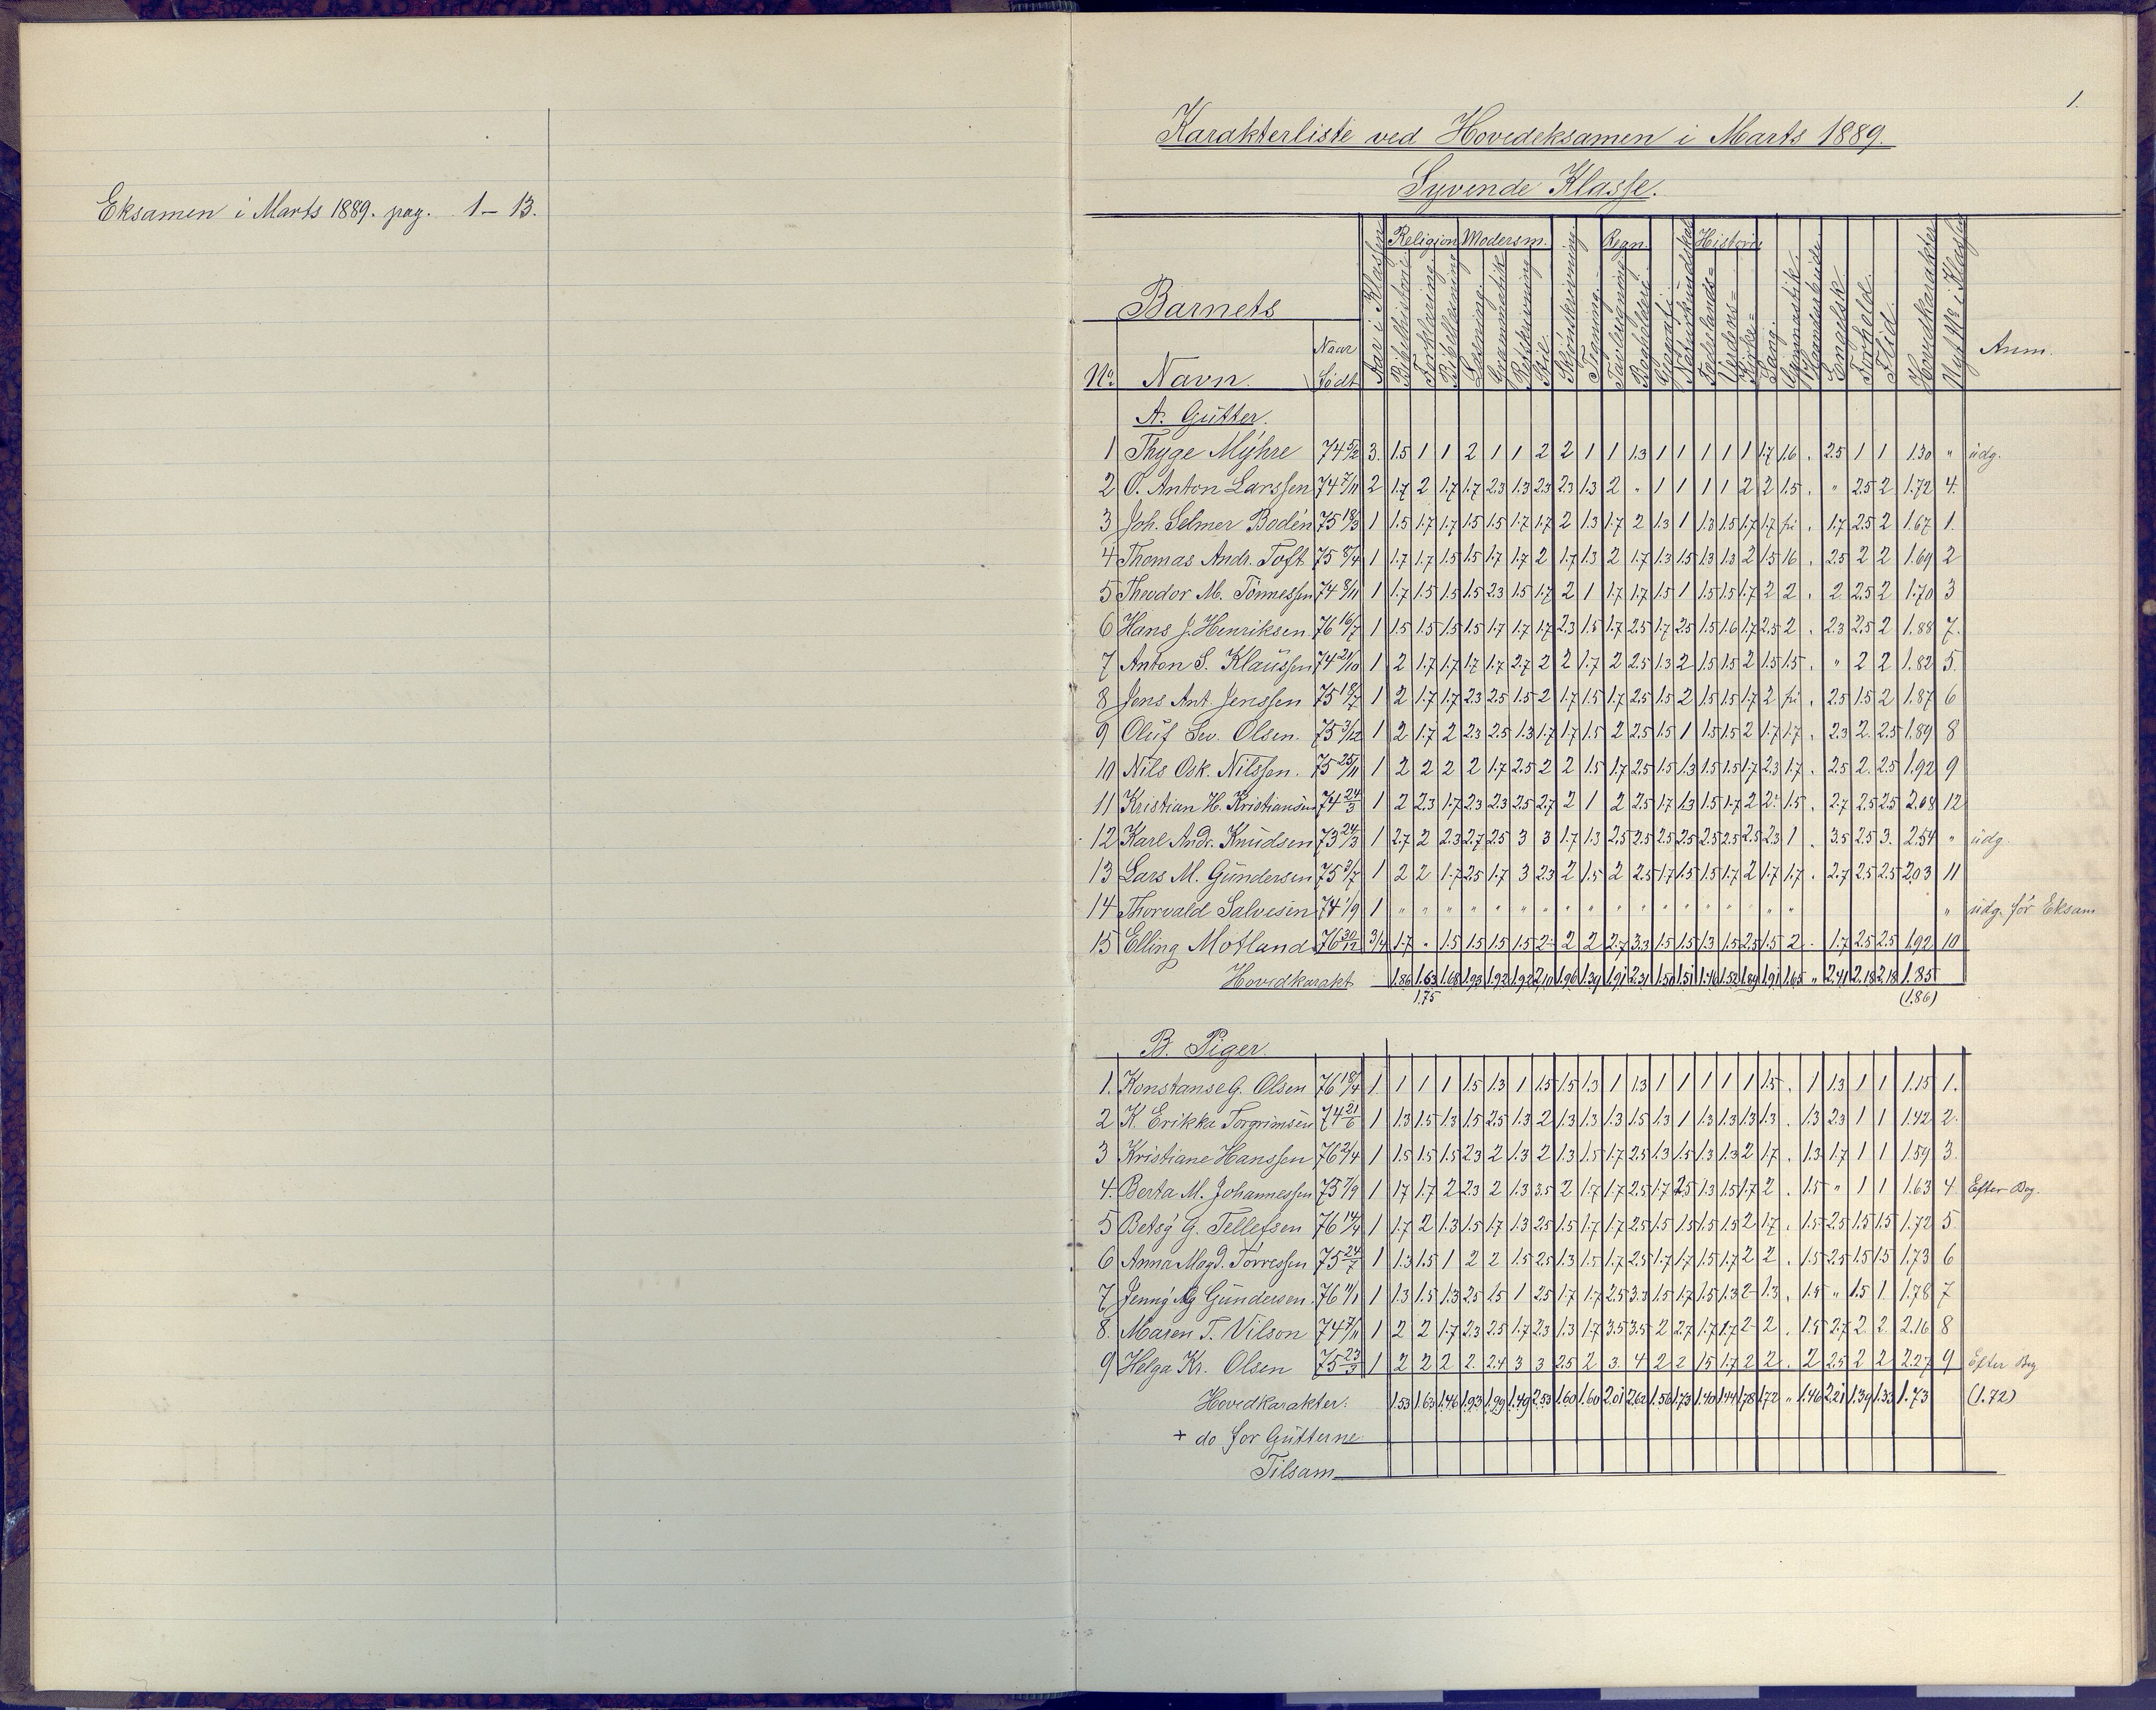 Eksamen i Marts 1889. pag. 1 – 13.
1.
Karakterliste ved Hovedeksamen i Marts 1889.
Syvende Klasse.
Barnets
No Navn. Naar Født Aar i Klassen Religion Bibelhistorie Forklaring Bibellæsning Modersm. Læsning Grammatik Retskrivning Stil Skjönskrivning. Tegning. Regn. Tavleregning Boghold. Geografi Naturkundskab Historie Fædrelands= Verdens= Kirke= Sang. Gymnastik. Haandarbeide. Engelsk Forhold. Flid. Hovedkarakter Nyt No i Klassen Anm.
A. Gutter.
1 Thyge Myhre 74 5/2 3. 1.5 1 1 2 1 1 2 2 1 1 1.3 1 1 1 1 1 1.7 1.6 . 2.5 1 1 1.30 " udg.
2 O. Anton Larssen 74 7/11 2 1.7 2 1.7 1.7 2.3 1.3 2.3 2.3 1.3 2 " 1 1 1 1 2 2 1.5 . " 2.5 2 1.72 4.
3 Joh. Selmer Bodén 75 18/3 1 1.5 1.7 1.7 1.5 1.5 1.7 1.7 2 1.3 1.7 2 1.3 1 1.3 1.5 1.7 1.7 fri . 1.7 2.5 2 1.67 1.
4 Thomas Andr. Toft 75 8/4 1 1.7 1.7 1.5 1.5 1.7 1.7 2 1.7 1.3 2 1.7 1.3 1.5 1.3 1.3 2 1.5 1.6 . 2.5 2 2 1.69 2
5 Theodor M. Tönnessen 74 8/11 1 1.7 1.5 1.5 1.5 2.3 1.5 1.7 2 1 1.7 1.7 1.5 1 1.5 1.5 1.7 2 2 . 2 2.5 2 1.70 3
6 Hans J. Henriksen. 76 16/7 1 1.5 1.5 1.5 1.5 1.7 1.7 1.7 2.3 1.5 1.7 2.5 1.7 2.5 1.5 1.6 1.7 2.5 2 . 2.3 2.5 2 1.88 7.
7 Anton S. Klaussen 74 21/10 1 2 1.7 1.7 1.7 1.7 2.7 2 2 1.7 2 2.5 1.3 2 1.5 1.5 2 1.5 1.5 . " 2 2 1.82 5.
8 Jens Ant Jenssen 75 18/7 1 2 1.7 1.7 2.3 2.5 1.5 2 1.7 1.5 1.7 2.5 1.5 2 1.5 1.5 1.7 2 fri . 2.5 1.5 2 1.87 6
9 Oluf Sev. Olsen. 75 3/12 1 2 1.7 2 2.3 2.5 1.3 1.7 1.7 1.5 2 2.5 1.5 1 1.5 1.5 2 1.7 1.7 . 2.3 2. 2.5 1.89 8
10 Nils Osk. Nilssen. 75 25/11 1 2 2 2 2 1.7 2.5 2 2 1.5 1.7 2.5 1.5 1.3 1.5 1.5 1.7 2.3 1.7 . 2.5 2. 2.5 1.92 9
11 Kristian H. Kristiansen 74 24/3 1 2 2.3 1.7 2.3 2.3 2.5 2.7 2 1 2 2.5 1.7 1.3 1.5 1.7 2 2. 1.5 . 2.7 2.5 2.5 2.08 12
12 Karl Andr. Knudsen 73 24/3 1 2.7 2 2.3 2.7 2.5 3 3 1.7 1.3 2.5 2.5 2.5 2.5 2.5 2.5 2.5 2.3 1 . 3.5 2.5 3. 2.54 " udg.
13 Lars M. Gundersen 75 3/7 1 2 2 1.7 2.5 1.7 3 2.3 2 1.5 2 2.5 1.7 1.5 1.5 1.7 2 1.7 1.7 . 2.7 2.5 2.5 2.03 11
14 Thorvald Salvesen 74 1/9 1 " " " " " " " " " " " " " " " " " " " udg. før Eksam
15 Elling Motland 76 30/12 3/4 1.7 " 1.5 1.5 1.5 1.5 2 2 2 2.7 3.3 1.5 1.5 1.3 1.5 2.5 1.5 2 . 1.7 2.5 2.5 1.92 10
Hovedkarakt 1.86 1.63 1.68 1.93 1.92 1.92 2.10 1.96 1.39 1.91 2.31 1.50 1.51 1.46 1.52 1.89 1.91 1.65 " 2.41 2.18 2.18 1.85
1.75 (1.86)
B. Piger.
1. Konstanse G. Olsen 76 18/4 1. 1 1 1 1.5 1.3 1 1.5 1.5 1.3 1 1.3 1 1 1 1 1 1.5 . 1 1.3 1 1 1.15 1.
2 K. Erikka Torgrimsen 74 21/6 1 1.3 1.5 1.3 1.5 2.5 1.3 2 1.3 1.3 1.3 1.5 1.3 1 1.3 1.3 1.3 1.3 . 1.3 2.3 1 1 1.42 2.
3 Kristiane Hanssen 76 2/4 1 1.5 1.5 1.5 2.3 2 1.3 2 1.3 1.5 1.7 2.5 1.3 1.5 1.3 1.3 2 1.7 . 1.3 1.7 1 1 1.59 3.
4. Berta M. Johannessen 75 7/9 1 1.7 1.7 2 2.3 2 1.3 3.5 2 1.7 1.7 2.5 1.7 2.5 1.3 1.5 1.7 2 . 1.5 " 1 1 1.63 4 Efter Beg.
5 Betsy G. Tellefsen 76 14/4 1 1.7 2 1.3 1.5 1.7 1.3 2.5 1.5 1.7 1.7 2.5 1.5 1.5 1.5 1.5 2 1.7 . 1.5 2.5 1.5 1.5 1.72 5
6 Anna Magd. Törressen 75 24/7 1 1.3 1.5 1 2 2 1.5 2.5 1.3 1.5 1.7 2.5 1.7 1.7 1.5 1.7 2 2 . 1.5 2.5 1.5 1.5 1.73 6
7 Jenny Ag Gundersen. 76 11/1 1 1.3 1.5 1.3 2.5 1.5 1 2.5 1.7 1.7 2.5 3.3 1.5 1.7 1.5 1.3 2 1.3 . 1.5 " 1.5 1 1.78 7
8. Maren T. Vilson 74 7/11 1 2 2 1.7 2.3 2.5 1.7 2.3 1.3 1.7 3.5 3.5 2 2.7 1.7 1.7 2 2 . 1.5 2.7 2. 2. 2.16 8
9 Helga Kr. Olsen 75 23/3 1 2 2 2 2. 2.4 3 3 2.5 2 3. 4 2 2 1.5 1.7 2 2 . 2 2.5 2 2 2.27 9 Efter Beg
Hovedkarakter: 1.53 1.63 1.46 1.93 1.99 1.49 2.53 1.60 1.60 2.01 2.62 1.56 1.73 1.40 1.44 1.78 1.72 " 1.46 2.21 1.39 1.33 1.73 (1.72)
+ do for Gutterne
Tilsam